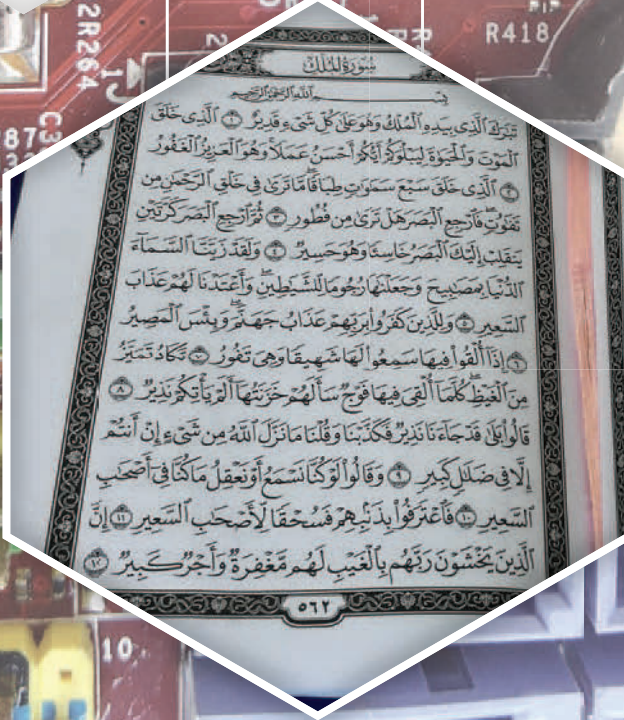 2R264
R418
سُورَةُ المُلْكِ
بِسْمِ اللَّهِ الرَّحْمَٰنِ الرَّحِيمِ
تَبَٰرَكَ ٱلَّذِى بِيَدِهِ ٱلْمُلْكُ وَهُوَ عَلَىٰ كُلِّ شَىْءٍ قَدِيرٌ ١ ٱلَّذِى خَلَقَ
ٱلْمَوْتَ وَٱلْحَيَوٰةَ لِيَبْلُوَكُمْ أَيُّكُمْ أَحْسَنُ عَمَلًا وَهُوَ ٱلْعَزِيزُ ٱلْغَفُورُ
٢ ٱلَّذِى خَلَقَ سَبْعَ سَمَٰوَٰتٍ طِبَاقًا مَّا تَرَىٰ فِى خَلْقِ ٱلرَّحْمَٰنِ مِن
تَفَٰوُتٍ فَٱرْجِعِ ٱلْبَصَرَ هَلْ تَرَىٰ مِن فُطُورٍ ٣ ثُمَّ ٱرْجِعِ ٱلْبَصَرَ كَرَّتَيْنِ
يَنقَلِبْ إِلَيْكَ ٱلْبَصَرُ خَاسِئًا وَهُوَ حَسِيرٌ ٤ وَلَقَدْ زَيَّنَّا ٱلسَّمَآءَ
ٱلدُّنْيَا بِمَصَٰبِيحَ وَجَعَلْنَٰهَا رُجُومًا لِّلشَّيَٰطِينِ وَأَعْتَدْنَا لَهُمْ عَذَابَ
ٱلسَّعِيرِ ٥ وَلِلَّذِينَ كَفَرُوا۟ بِرَبِّهِمْ عَذَابُ جَهَنَّمَ وَبِئْسَ ٱلْمَصِيرُ
٦ إِذَآ أُلْقُوا۟ فِيهَا سَمِعُوا۟ لَهَا شَهِيقًا وَهِىَ تَفُورُ ٧ تَكَادُ تَمَيَّزُ
مِنَ ٱلْغَيْظِ كُلَّمَآ أُلْقِىَ فِيهَا فَوْجٌ سَأَلَهُمْ خَزَنَتُهَآ أَلَمْ يَأْتِكُمْ نَذِيرٌ ٨
قَالُوا۟ بَلَىٰ قَدْ جَآءَنَا نَذِيرٌ فَكَذَّبْنَا وَقُلْنَا مَا نَزَّلَ ٱللَّهُ مِن شَىْءٍ إِنْ أَنتُمْ
إِلَّا فِى ضَلَٰلٍ كَبِيرٍ ٩ وَقَالُوا۟ لَوْ كُنَّا نَسْمَعُ أَوْ نَعْقِلُ مَا كُنَّا فِىٓ أَصْحَٰبِ
ٱلسَّعِيرِ ١٠ فَٱعْتَرَفُوا۟ بِذَنۢبِهِمْ فَسُحْقًا لِّأَصْحَٰبِ ٱلسَّعِيرِ ١١ إِنَّ
ٱلَّذِينَ يَخْشَوْنَ رَبَّهُم بِٱلْغَيْبِ لَهُم مَّغْفِرَةٌ وَأَجْرٌ كَبِيرٌ ١٢
٥٦٢
10